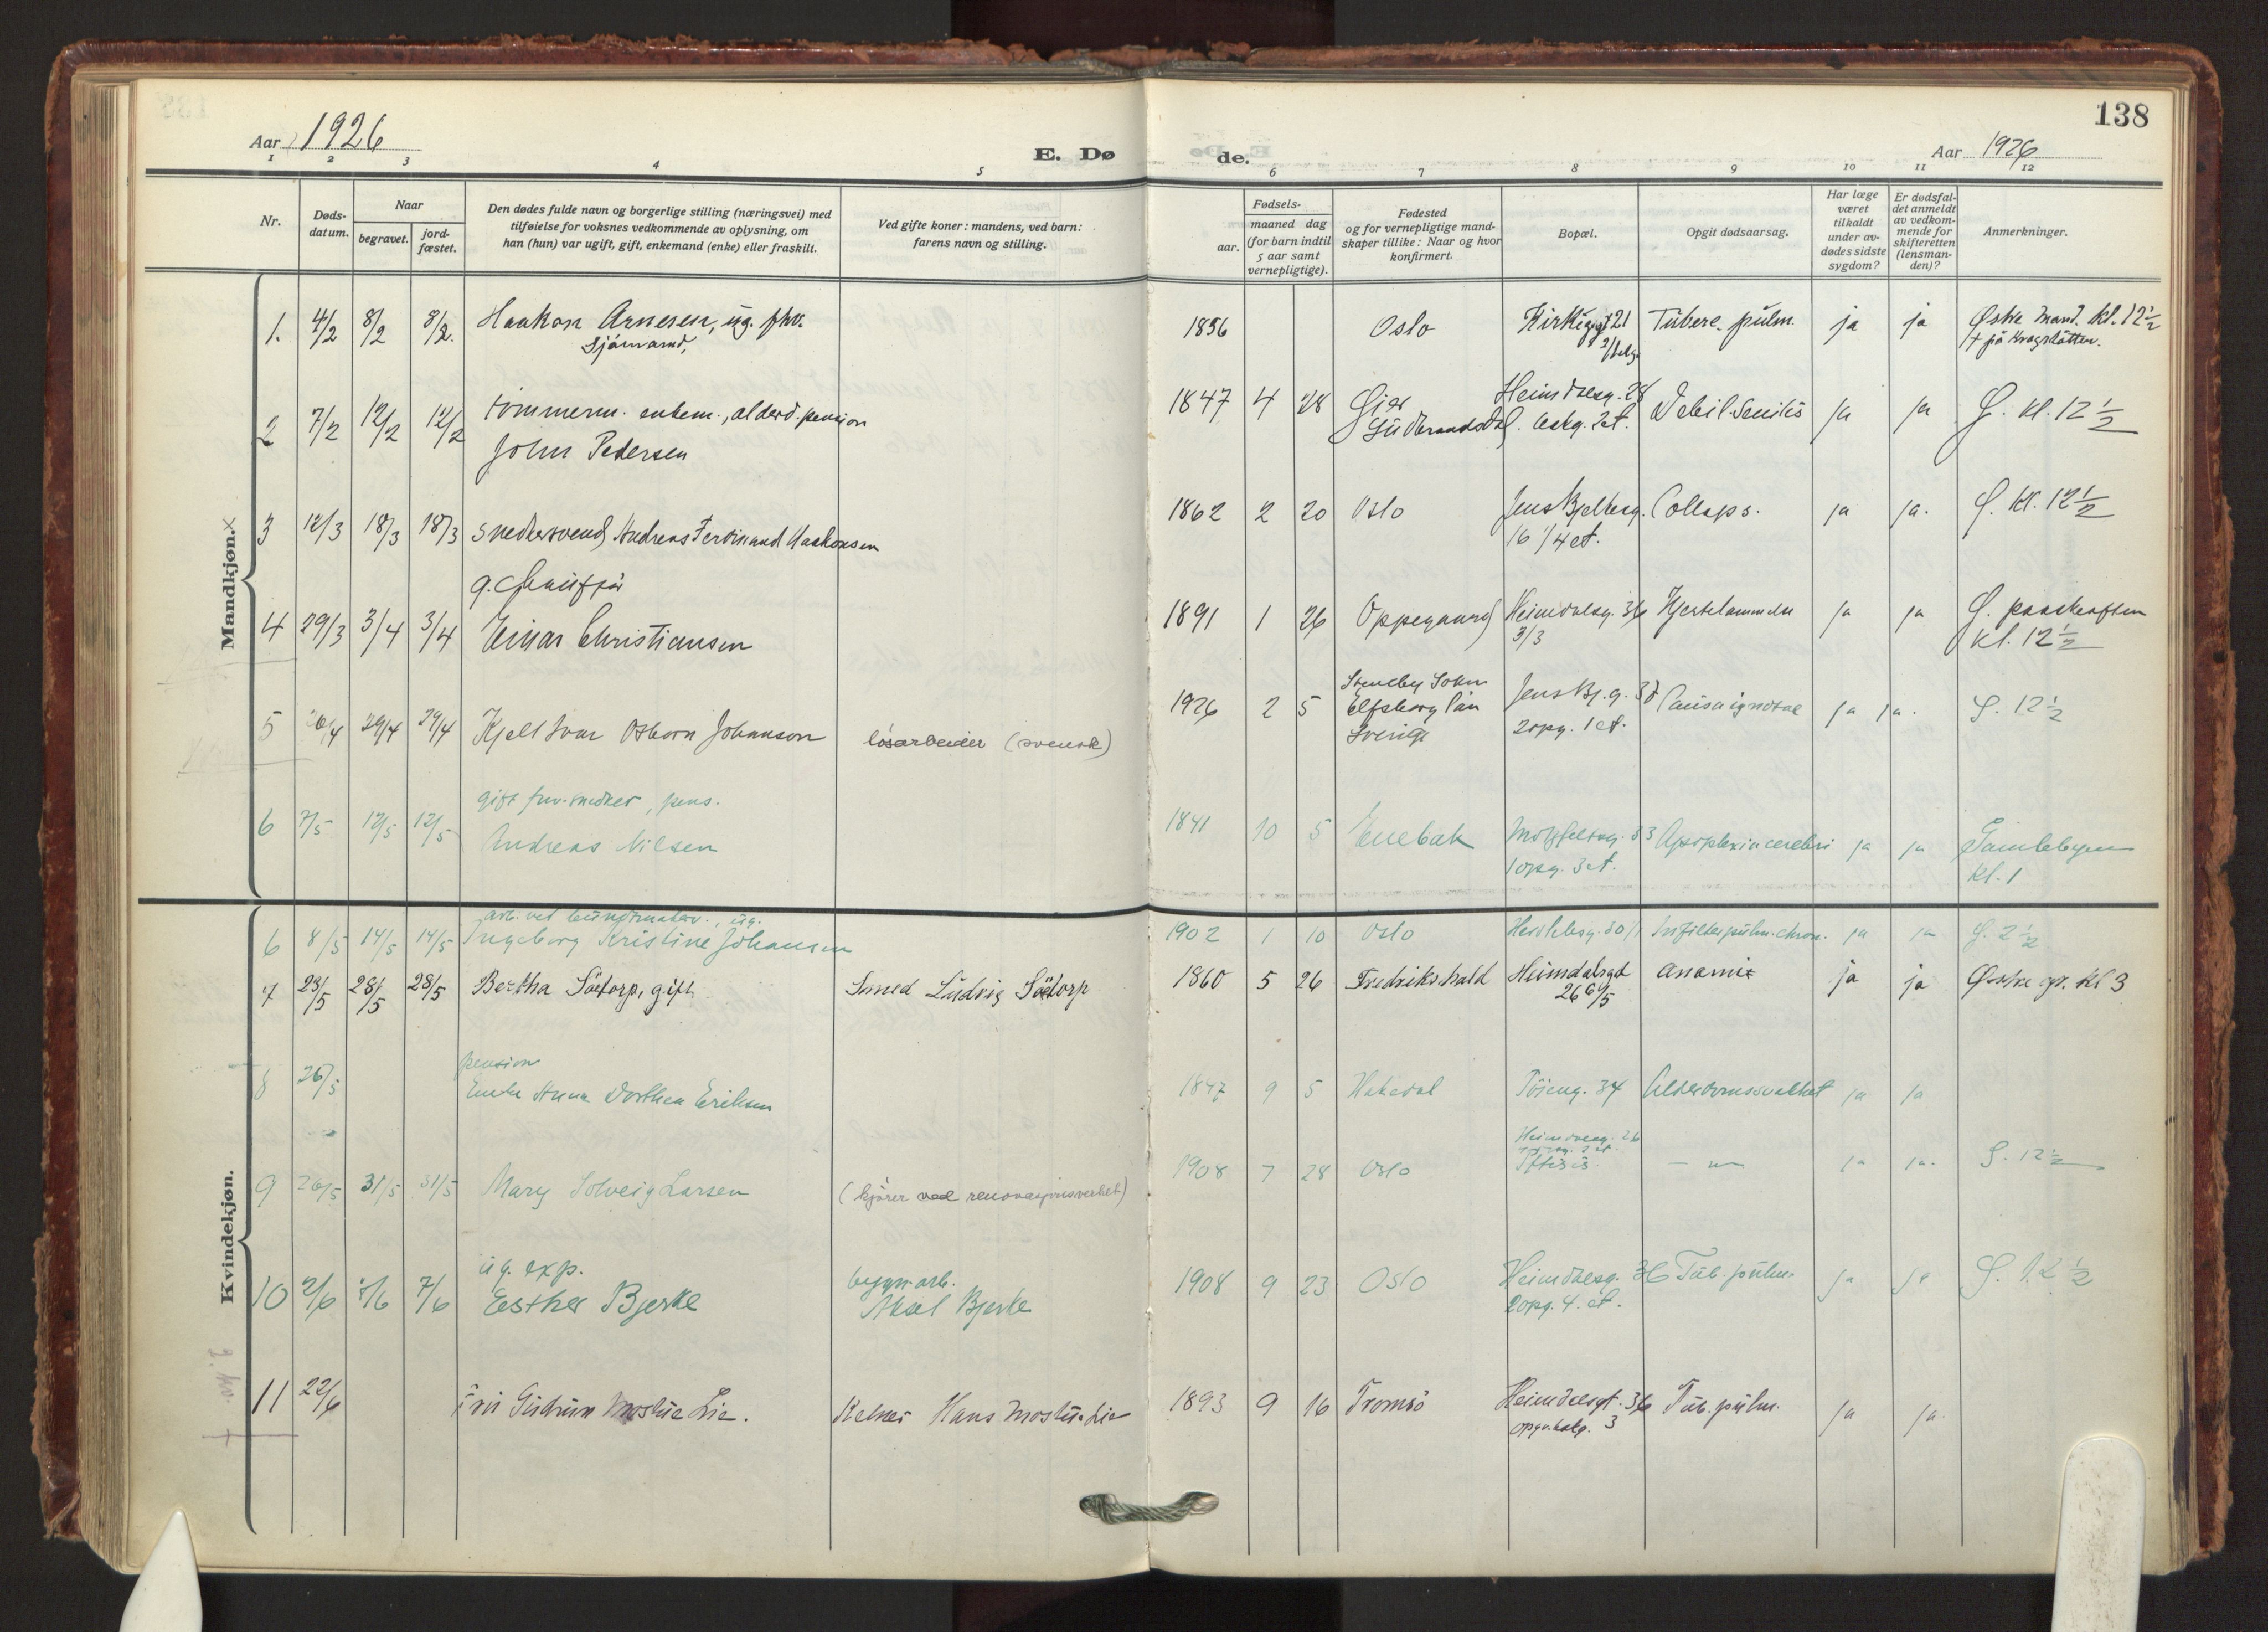 138
Aar 1926
E. Dø de.
Aar 1926
1 2 3 4 5 6 7 8 9 10 11 12
Nr.
Døds-
datum.
Naar
begravet.
jord-
fæstet.
Den dødes fulde navn og borgerlige stilling (næringsvei) med
tilføielse for voksnes vedkommende av oplysning, om
han (hun) var ugift, gift, enkemand (enke) eller fraskilt.
Ved gifte koner: mandens, ved barn:
farens navn og stilling.
Fødsels-
aar.
maaned dag
(for barn indtil
5 aar samt
vernepligtige).
Fødested
og for vernepligtige mand-
skaper tillike: Naar og hvor
konfirmert.
Bopæl.
Opgit dødsaarsag.
Har læge
været
tilkaldt
under av-
dødes sidste
sygdom?
Er dødsfal-
det anmeldt
av vedkom-
mende for
skifteretten
(lensman-
den)?
Anmerkninger.
Mandkjøn.
1. 4/2 8/2 8/2. Haakon Arnesen, ug. fhv. 1856 Oslo Tuberc. pulm. ja ja Østre Mand. kl. 12 1/2
Sjømand,
+ på Krogstøtten.
2 7/2 12/2 12/2 tømmerm. enkem., alderd. pension 1847 4 28 Heimdalsg. 28 Debil. Senilis ja ja G. kl. 12 1/2
John Pedersen Gudbrandsdal. bakg. 2 et.
3 12/3 18/3 18/3 snedkersvend Andreas Ferdinand Haakonsen 1862 2 20 Oslo Jens Bjelkesg. Collaps. ja ja. G. kl. 12 1/2
16 1/4 et.
g. chauffør
4 29/3 3/4 3/4 Einar Christiansen 1891 1 26 Oppegaard Heimdalsg. 36 Hjertelammelse ja ja G. paaskeaften
3/3 kl. 12 1/2
5 29/4 29/4 Kjell Ivar Osborn Johanson løsarbeider (svensk) 1926 2 5 Elfsborg län Jens Bj. g. Causa ignotae ja ja. G. 12 1/2
Sverige 2 opg. 1 et.
gift fhv. snedker, pens.
6 7/5 12/5 12/5 Andreas Nilsen 1841 10 5 Enebak Apoplexia cerebri ja ja Gamlebyen
1 opg. 3 et. kl. 1
Kvindekjøn.
6 8/5 14/5 14/5 Ingeborg Kristine Johansen 1902 1 10 Oslo Infilter pulm. chron. ja ja G. 2 1/2
7 23/5 28/5 28/5 Bertha Sætorp, gift Smed Ludvig Sætorp 1860 5 26 Fredrikshald Heimdalsgt Anæmie ja ja Østre gr. kl 3
26 6/5
pension
8 26/5 Enke Anna Dorthea Eriksen 1847 9 5 Hakedal Tøieng. 34 Alderdomssvakhet ja ja
Heimdalsg. 26
9 26/5 31/5 31/5 Mary Solveig Larsen (kjører ved renovasjonsverket) 1908 7 28 Oslo Pftisis. — " — ja ja. G. 12 1/2
ug. exp. bygn. arb.
10 2/6 7/6 7/6 Esther Bjerke Aksel Bjerke 1908 9 23 Oslo Heimdalsg. 36 Tub. pulm. ja ja G. 12 1/2
2 opg. 4. et.
11 22/6 Fru Gudrun Mostue Lie. Kelner Hans Mostue Lie 1893 9 16 Tromsø Heimdalsgt. 36 Tub. pulm. ja ja.